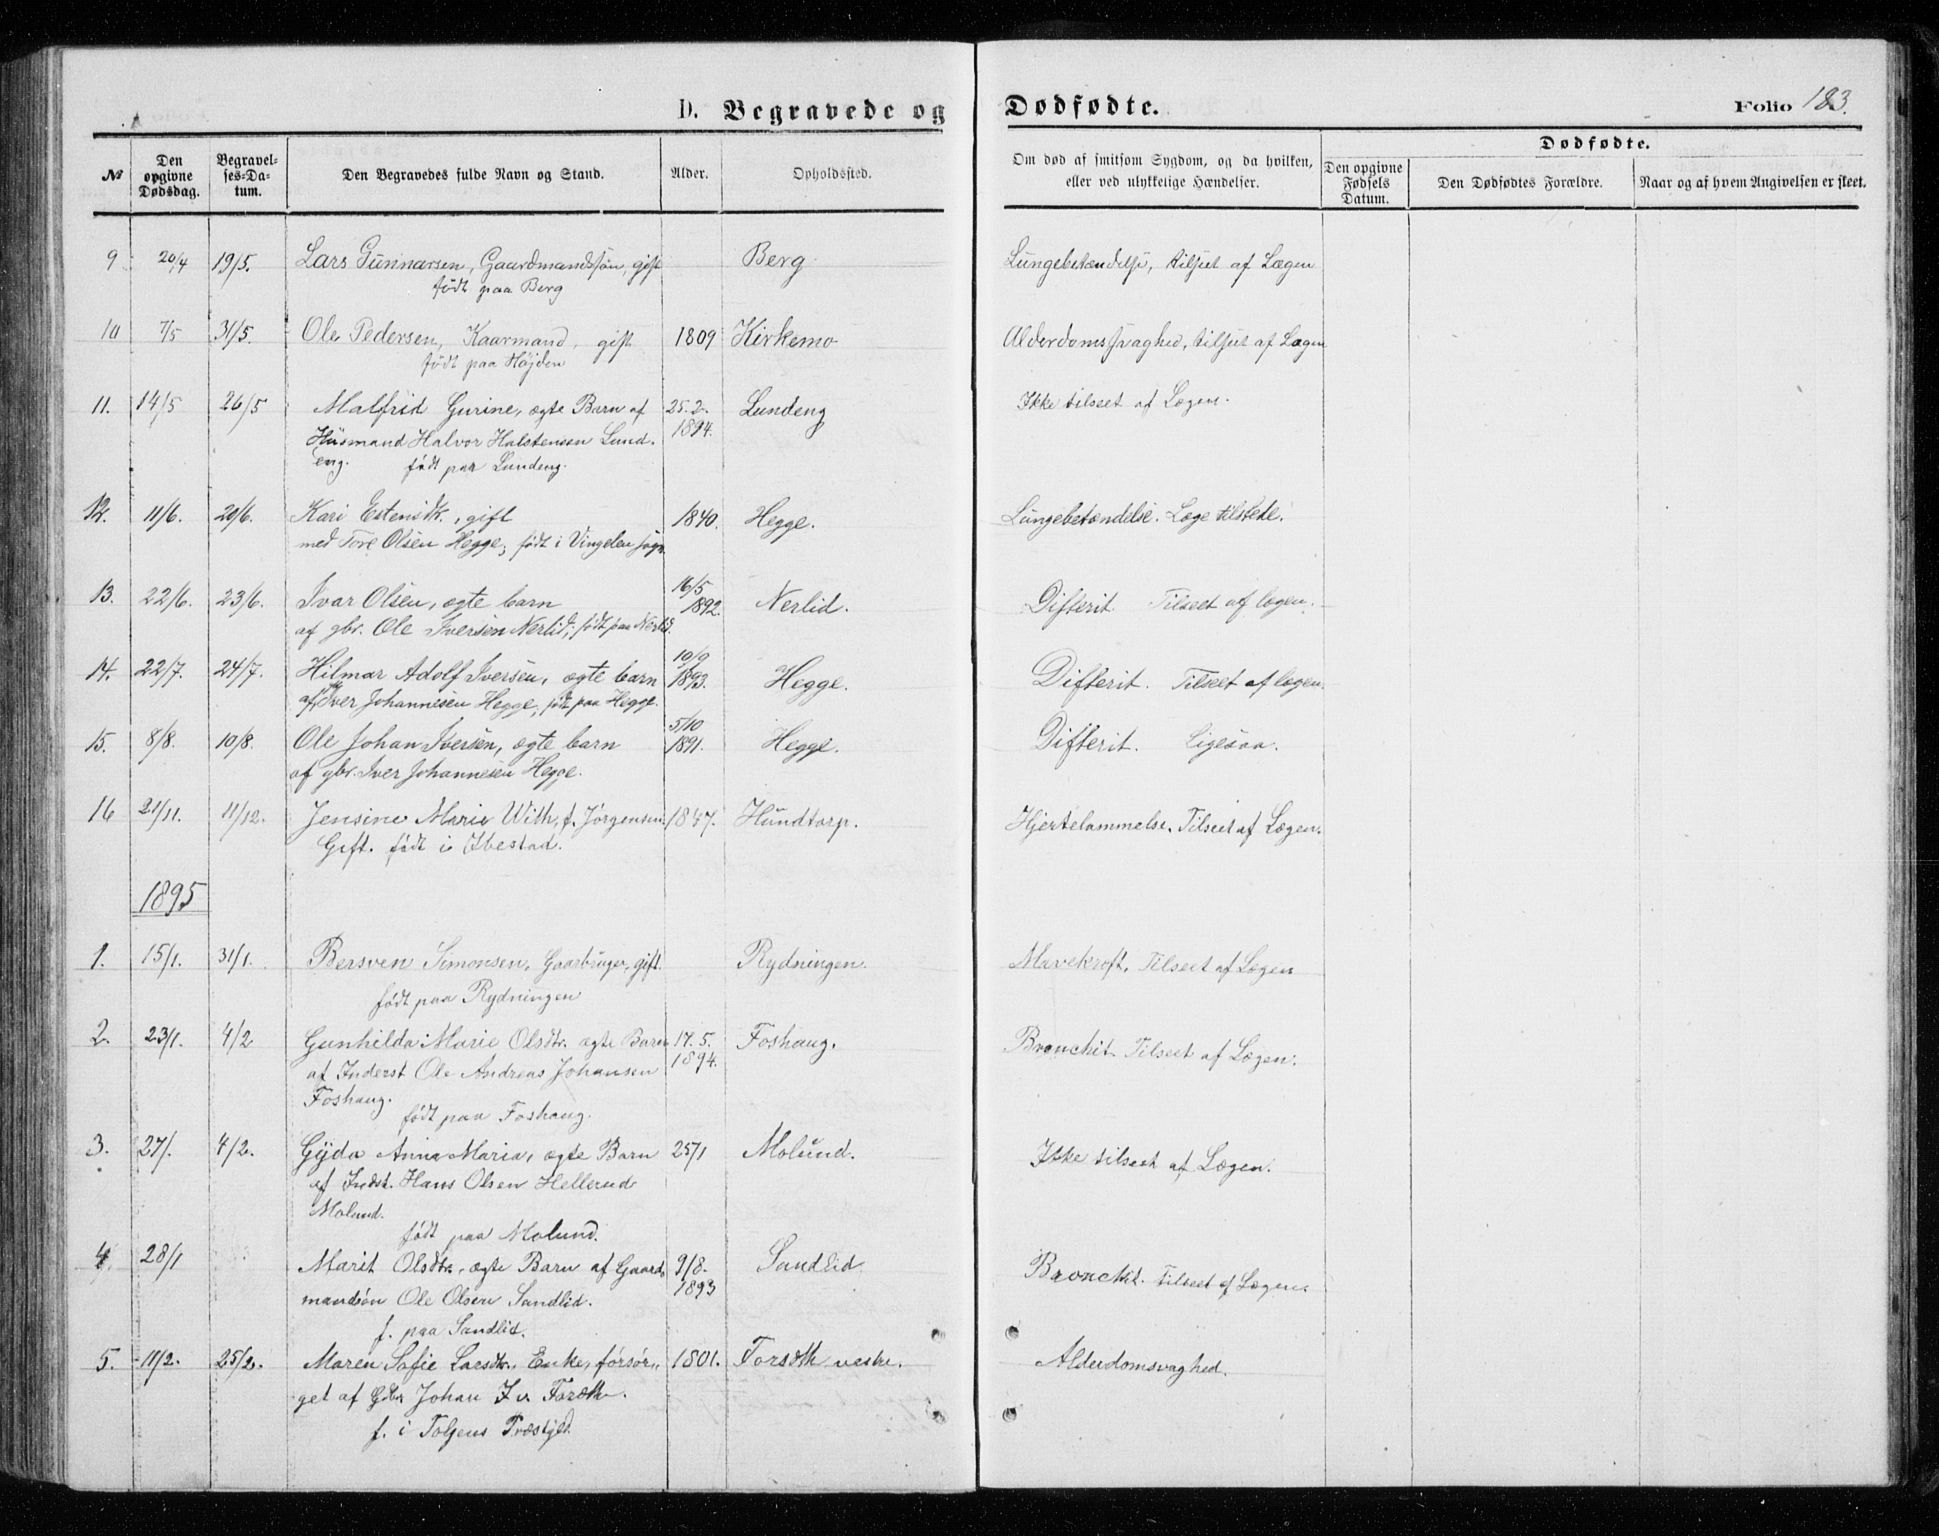 D. Begravede og Dødfødte. Folio 183.
№ Den opgivne Dødsdag. Begravelses-Datum. Den Begravedes fulde Navn og Stand. Alder. Opholdssted. Om død af smitsom Sygdom, og da hvilken, eller ved ulykkelige Hændelser. Dødfødte. Den opgivne Fødsels Datum. Den Dødfødtes Forældre. Naar og af hvem Angivelsen er skeet.
9 20/4 19/5. Lars Gunnarsen, Gaardmandssøn, gift Berg Lungebetændelse, tilseet af Lægen
født paa Berg
10 7/5 31/5. Ole Pedersen, Kaarmand, gift 1809 Kirkemo Alderdomssvaghed, tilseet af Lægen
født paa Højden
11. 14/5 26/5 Malfrid Gurine, ægte Barn af 25.2. Lundeng Ikke tilseet af Lægen.
Husmand Halvor Halstensen Lund- 1894.
eng. født paa Lundeng.
12. 11/6. 20/6. Kari Estensdtr., gift 1840. Hegge. Lungebetændelse. Læge tilstede.
med Tore Olsen Hegge, født i Vingelen sogn.
13. 22/6. 23/6. Ivar Olsen, ægte barn 16/5 1892. Nerlid. Difterit. Tilseet af lægen.
af gbr. Ole Iversen Nerlid, født paa Nerlid.
14. 22/7. 24/7. Hilmar Adolf Iversen, ægte barn 10/9 1893. Hegge. Difterit. Tilseet af lægen.
af Iver Johannesen Hegge, født paa Hegge.
15. 8/8. 10/8. Ole Johan Iversen, ægte barn 5/10 1891. Hegge. Difterit. Ligesaa.
af gbr. Iver Johannesen Hegge.
16 21/11. 11/12. Jensine Marie With, f. Jørgensen. 1847. Hundtorp. Hjertelammelse. Tilseet af Lægen.
Gift. født i Ibestad.
1895
1. 15/1. 31/1. Bersven Simonsen, Gaarbruger, gift. Rydningen. Mavekræft. Tilseet af Lægen
født paa Rydningen
2. 23/1. 4/2 Gunhilda Marie Olsdtr. ægte Barn 17.5. Foshaug. Bronchit. Tilseet af Lægen.
af Inderst Ole Andreas Johansen 1894.
Foshaug.
født paa Foshaug.
3. 27/. 4/2. Gyda Anna Maria, ægte Barn 25/1 Molund. Ikke tilseet af Lægen.
af Indst. Hans Olsen Hellerud
Molund.
født paa Molund.
4. 28/1 Marit Olsdtr. ægte Barn af Gaard- 9/8. Sandlid Bronchit. Tilseet af Lægen.
mandsøn Ole Olsen Sandlid. 1893
f. paa Sandlid.
5. 11/2. 25/2. Maren Sofie Larsdtr. Enke, forsør- 1801. Forsæth vestre. Alderdomsvaghed.
get af Gbr. Johan
f. i Tolgens Præstgjld.